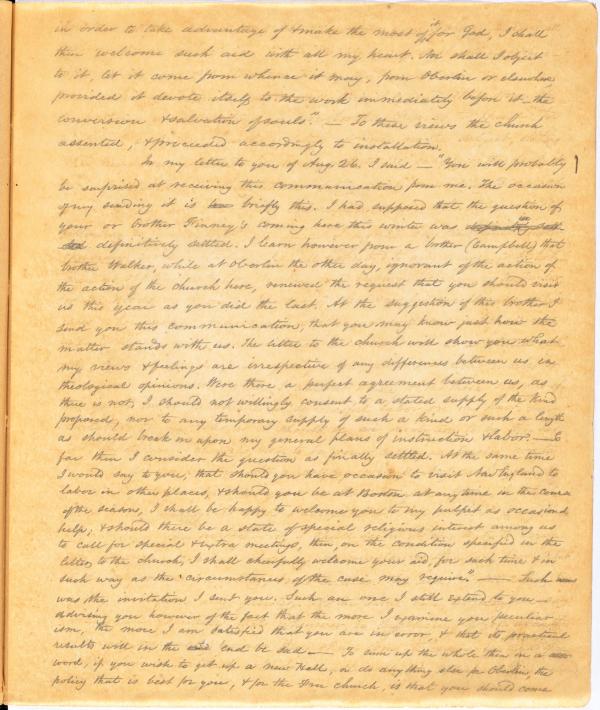 in order to take advantage of & make the most of it for God, I shall
then welcome such aid with all my heart. Nor shall I object
to it, let it come from whence it may, from Oberlin or elsewhere,
provided it devote itself to the work immediately before it – the
conversion & salvation of souls." — To these views the church
assented, & proceeded accordingly to installation.
In my letter to you of Aug. 26. I said — "You will probably
be surprised at receiving this communication from me. The occasion
of my sending it is briefly this. I had supposed that the question of
your or brother Finney's coming here this winter was
definitively settled. I learn however from a brother (Campbell) that
brother Walker, while at Oberlin the other day, ignorant of the action of
the action of the church here, renewed the request that you should visit
us this year as you did the last. At the suggestion of this brother I
send you this communication, that you may know just how the
matter stands with us. The letter to the church will show you what
my views & feelings are irrespective of any differences between us in
theological opinions. Were there a perfect agreement between us, as
there is not, I should not willingly consent to a stated supply of the kind
proposed, nor to any temporary supply of such a kind or such a length
as should break in upon my general plans of instruction & labor. — So
far then I consider the question as finally settled. At the same time
I would say to you, that should you have occasion to visit New England to
labor in other places, & should you be at Boston at any time in the course
of the season, I shall be happy to welcome you to my pulpit as occasional
help; & should there be a state of special religious interest among us
to call for special & extra meetings, then, on the condition specified in the
letter to the church, I shall cheerfully welcome your aid, for such time & in
such way as the circumstances of the case may require." — Such
was the invitation I sent you. Such an one I still extend to you —
advising you however of the fact that the more I examine your peculiar
ism, the more I am satisfied that you are in error, & that its practical
results will in the end be sad — To sum up the whole then in a
word, if you wish to get up a new Hall, or do anything else for Oberlin, the
policy that is best for you, & for the Free church, is that you should come